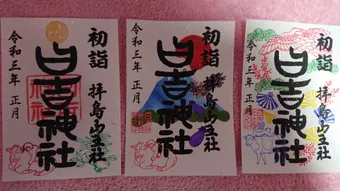 初詣
拝島山王社
日吉神社
令和三年 正月
初詣
拝島山王社
日吉神社
令和三年 正月
初詣
拝島山王社
日吉神社
令和三年 正月